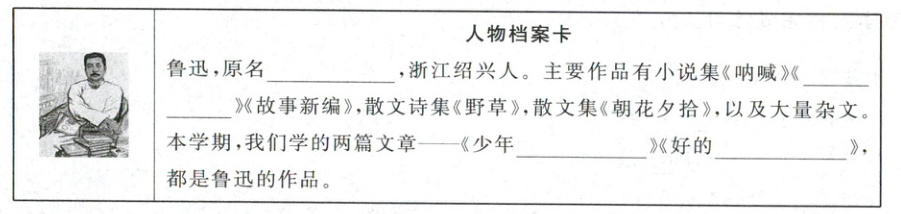 人物档案卡
鲁迅,原名____________,浙江绍兴人。主要作品有小说集《呐喊》《______
______》《故事新编》,散文诗集《野草》,散文集《朝花夕拾》,以及大量杂文。
本学期,我们学的两篇文章——《少年____________》《好的____________》,
都是鲁迅的作品。